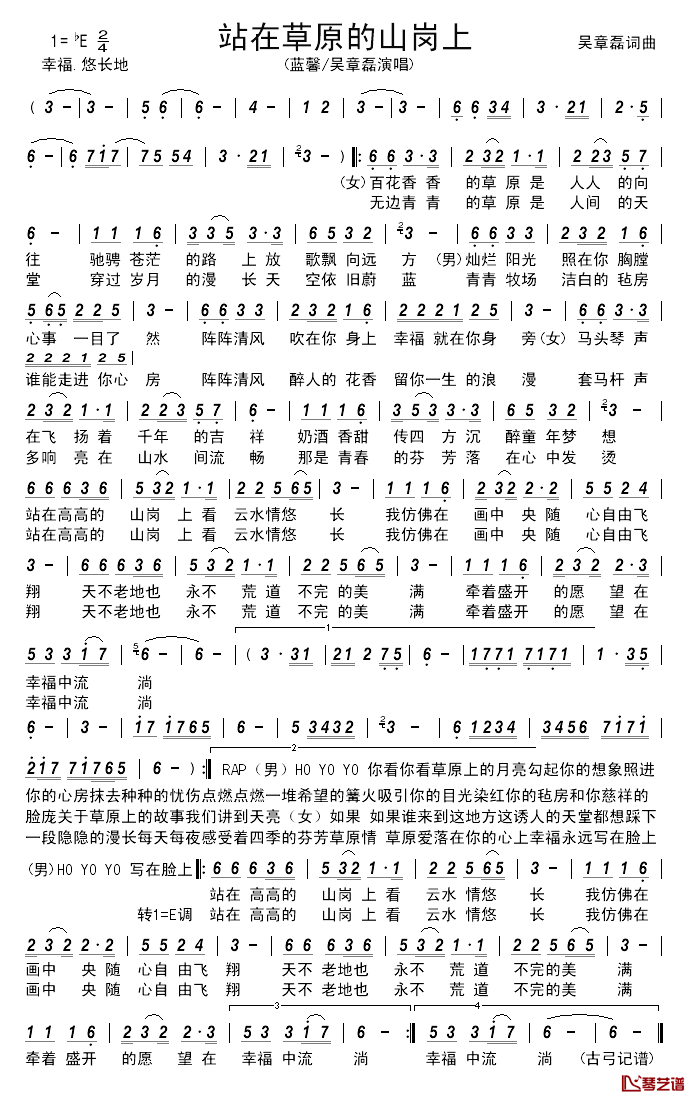 站在草原的山岗上
1= ♭E 2/4
吴章磊词曲
幸福.悠长地
(蓝馨/吴章磊演唱)
( 3 - | 3 - | 5 6 | 6 - | 4 - | 1 2 | 3 - | 3 - | 6 6 3 4 | 3 · 2 1 | 2 · 5 |
6 - | 6 7 1 7 | 7 5 5 4 | 3 · 2 1 | 3 - ) |: 6 6 3 · 3 | 2 3 2 1 · 1 | 2 2 3 5 7 |
(女)百花香 香 的草 原 是 人人 的向
无边青 青 的草 原 是 人间 的天
6 - | 1 1 1 6 | 3 3 5 3 · 3 | 6 5 5 3 2 | 3 - | 6 6 3 · 3 | 2 3 2 1 · 1 | 2 2 3 5 7 |
往 驰骋 苍茫 的路 上 放 歌飘 向远 方 (男)灿烂 阳光 照在你 胸膛
堂 穿过 岁月 的漫 长 天 空依 旧蔚 蓝 青青 牧场 洁白的 毡房
心事 一目了 然 阵阵清风 吹在你 身上 幸福 就在你身 旁(女)马头琴 声
2 2 2 1 2 5 |
谁能走进 你心 房 阵阵清风 醉人的 花香 留你一生 的浪 漫 套马杆 声
2 3 2 1 · 1 | 2 2 3 5 5 | 6 - | 1 1 1 6 | 3 5 3 3 · 3 | 6 5 3 2 | 3 - |
在飞 扬着 千年 的吉 祥 奶酒 香甜 传四 方沉 醉童 年梦 想
多响 亮在 山水 间流 畅 那是 青春 的芬 芳落 在心 中发 烫
6 6 6 3 6 | 5 3 2 1 · 1 | 2 2 5 6 5 | 3 - | 1 1 1 6 | 2 3 2 2 · 2 | 5 5 2 4 |
站在高高的 山岗 上看 云水情悠 长 我仿佛在 画中 央随 心自由飞
站在高高的 山岗 上看 云水情悠 长 我仿佛在 画中 央随 心自由飞
3 - | 6 6 6 3 6 | 5 3 2 1 · 1 | 2 2 5 6 5 | 3 - | 1 1 1 6 | 2 3 2 2 · 3 |
翔 天不老地也 永不 荒道 不完的美 满 牵着盛开 的愿 望在
翔 天不老地也 永不 荒道 不完的美 满 牵着盛开 的愿 望在
1
5 3 3 1 7 | 6 - | 6 - | ( 3 · 3 1 | 2 1 2 7 5 | 6 - | 6 - | 1 7 7 1 7 1 7 1 | 1 · 3 5 |
幸福中流 淌
幸福中流 淌
6 - | 3 - | 1 7 1 7 6 5 | 6 - | 5 3 4 3 2 | 3 - | 6 1 2 3 4 | 3 4 5 6 7 1 7 1 |
2
2 1 7 7 1 7 6 5 | 6 - ) :| RAP (男) HO YO YO 你看你看草原上的月亮勾起你的想象照进
你的心房抹去种种的忧伤点燃点燃一堆希望的篝火吸引你的目光染红你的毡房和你慈祥的
脸庞关于草原上的故事我们讲到天亮(女)如果 如果谁来到这地方这诱人的天堂都想踩下
一段隐隐的漫长每天每夜感受着四季的芬芳草原情 草原爱落在你的心上幸福永远写在脸上
(男)HO YO YO 写在脸上 |: 6 6 6 3 6 | 5 3 2 1 · 1 | 2 2 5 6 5 | 3 - | 1 1 1 6 |
站在 高高的 山岗 上 看 云水 情悠 长 我仿佛在
转1=E调 站在 高高的 山岗 上 看 云水 情悠 长 我仿佛在
2 3 2 2 · 2 | 5 5 2 4 | 3 - | 6 6 6 3 6 | 5 3 2 1 · 1 | 2 2 5 6 5 | 3 - |
画中 央 随 心自 由飞 翔 天不 老地也 永不 荒 道 不完的美 满
画中 央 随 心自 由飞 翔 天不 老地也 永不 荒 道 不完的美 满
3 4
1 1 1 6 | 2 3 2 2 · 3 | 5 3 3 1 7 | 6 - :| 5 3 3 1 7 | 6 - | 6 - ||
牵着 盛开 的愿 望 在 幸福 中流 淌 幸福 中流 淌 (古弓记谱)
琴艺谱